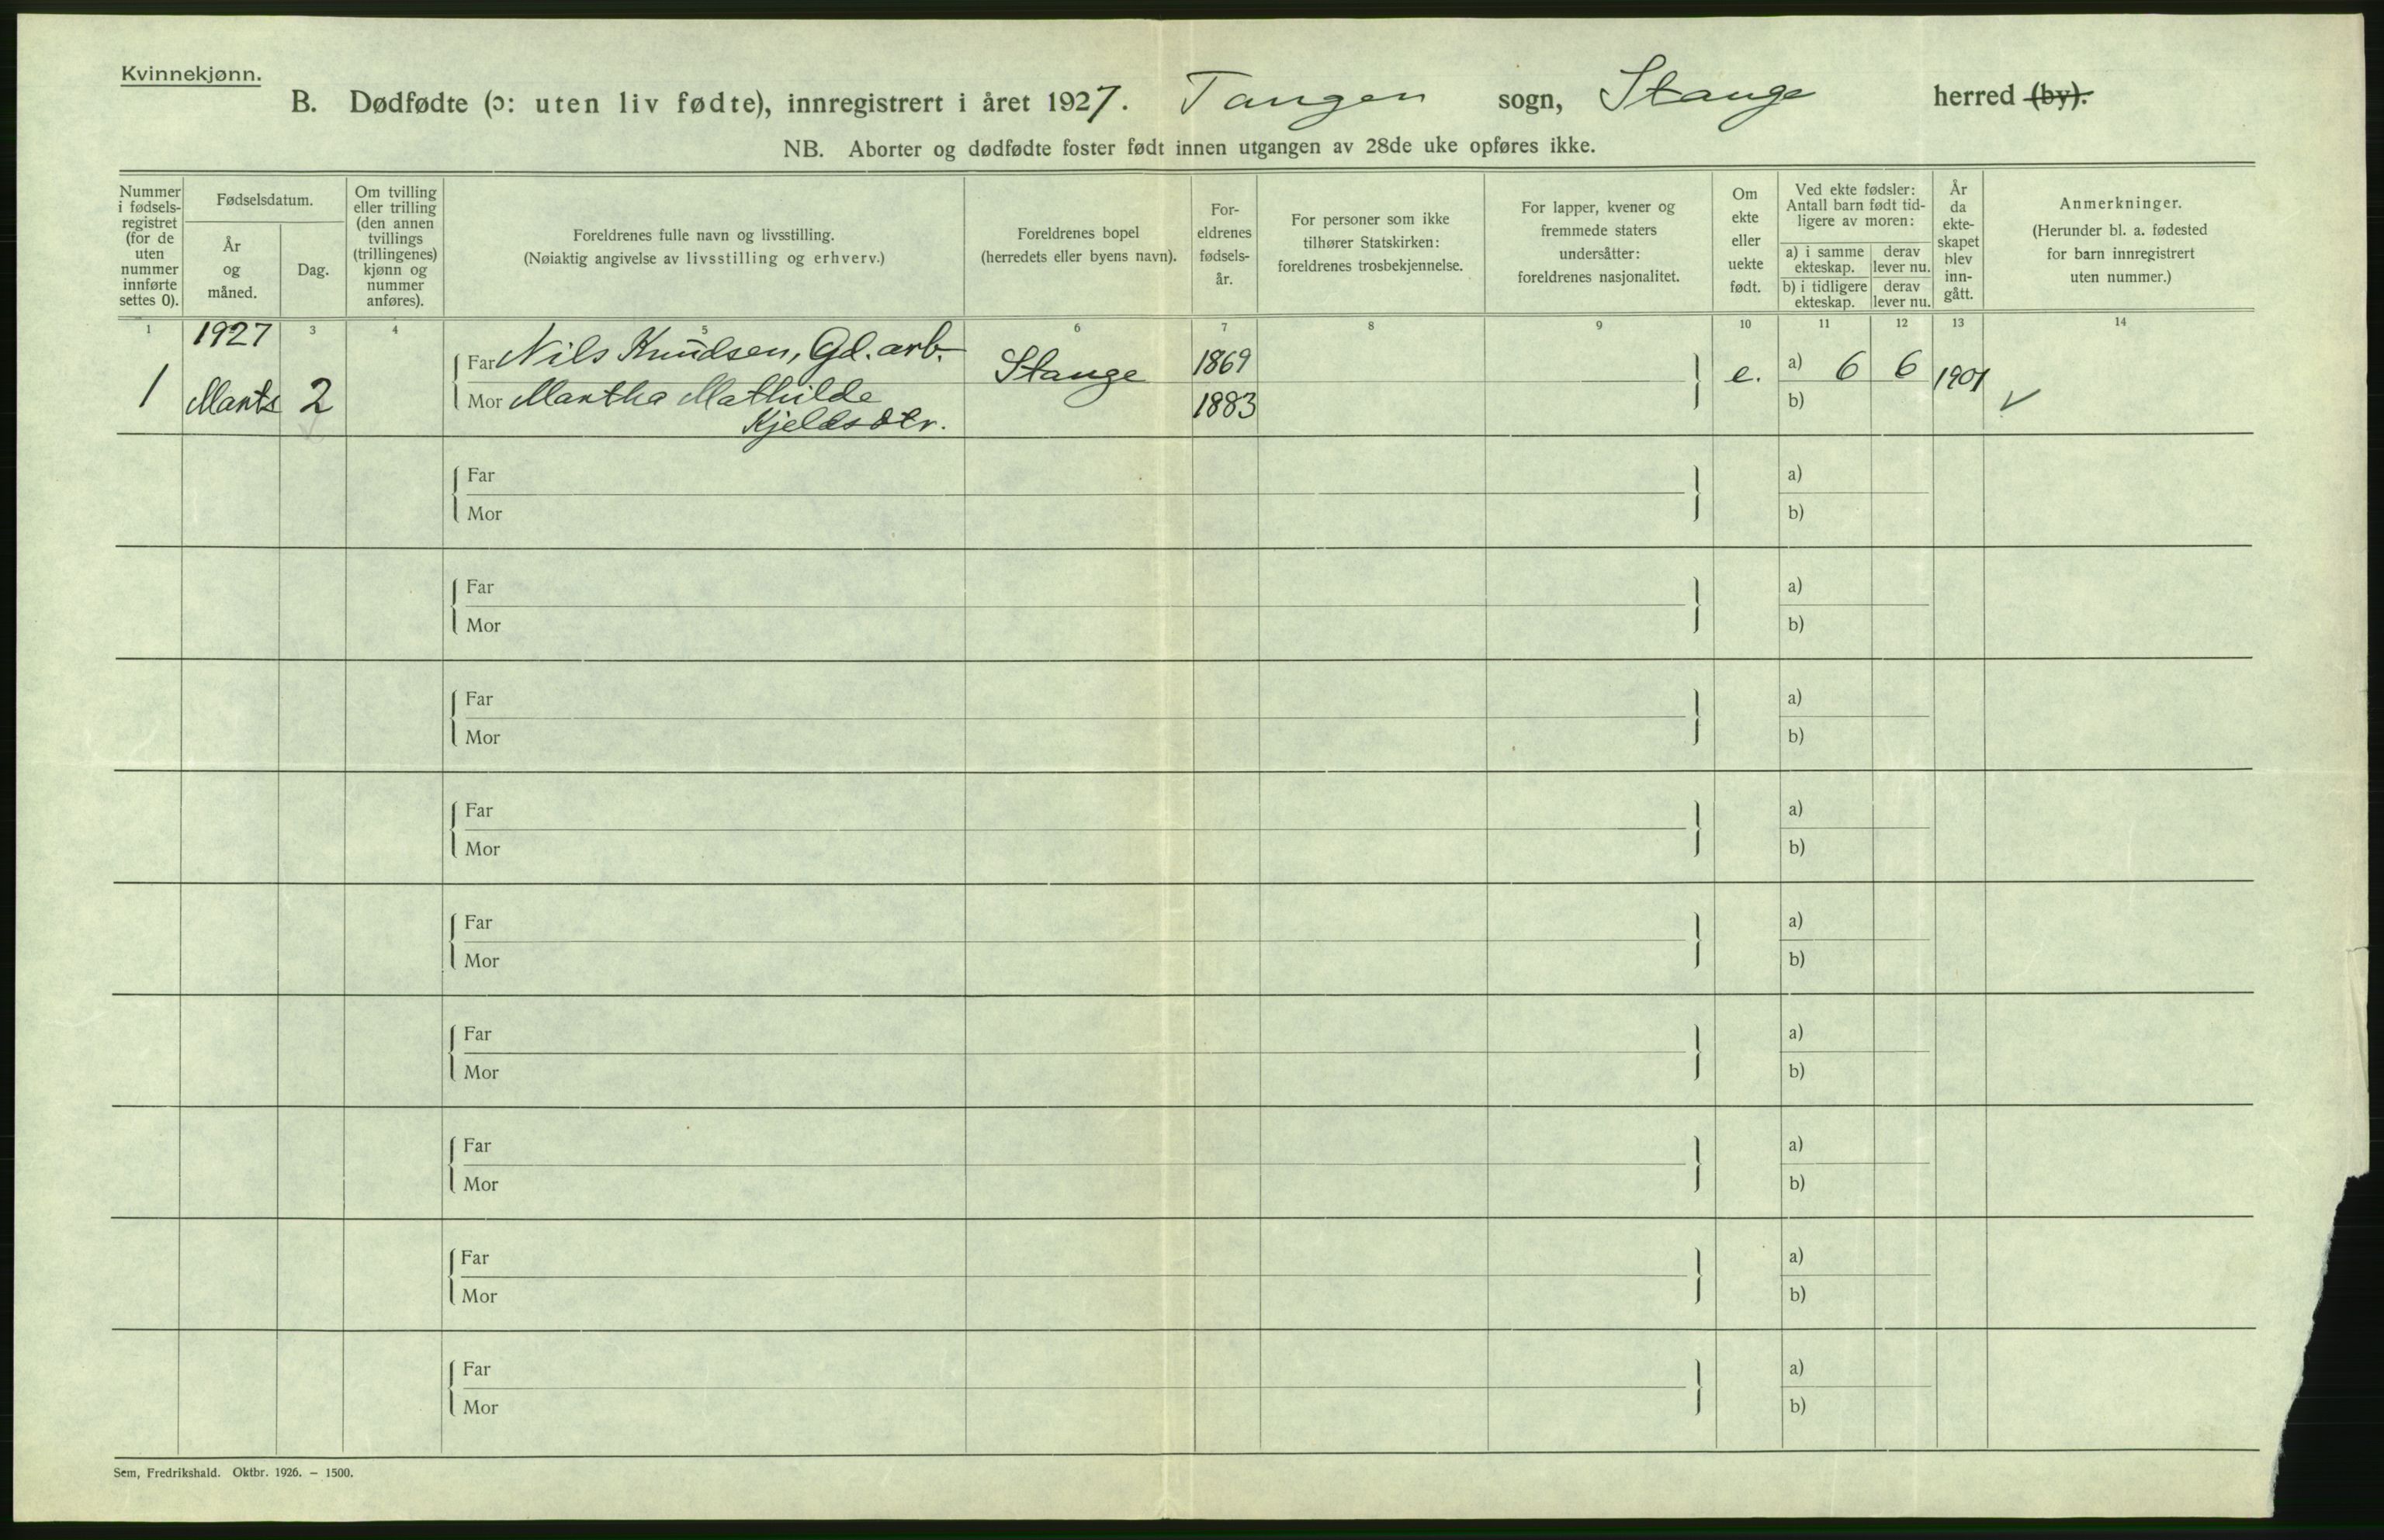 Kvinnekjønn.
B. Dødfødte (ɔ: uten liv fødte), innregistrert i året 1927. Tangen sogn, Stange herred (by).
NB. Aborter og dødfødte foster født innen utgangen av 28de uke opføres ikke.
Nummer
i fødsels-
registret
(for de
uten
nummer
innførte
settes 0).
Fødselsdatum.
År
og
måned.
Dag.
Om tvilling
eller trilling
(den annen
tvillings
(trillingenes)
kjønn og
nummer
anføres).
Foreldrenes fulle navn og livsstilling.
(Nøiaktig angivelse av livsstilling og erhverv.)
Foreldrenes bopel
(herredets eller byens navn).
For-
eldrenes
fødsels-
år.
For personer som ikke
tilhører Statskirken:
foreldrenes trosbekjennelse.
For lapper, kvener og
fremmede staters
undersåtter:
foreldrenes nasjonalitet.
Om
ekte
eller
uekte
født.
Ved ekte fødsler:
Antall barn født tid-
ligere av moren:
a) i samme
ekteskap.
derav
lever nu.
b) i tidligere
ekteskap.
derav
lever nu.
År
da
ekte-
skapet
blev
inn-
gått.
Anmerkninger.
(Herunder bl. a. fødested
for barn innregistrert
uten nummer.)
1 3 4 5 6 7 8 9 10 11 12 13 14
1927
Far Nils Knudsen, Gd. arb. Stange 1869 e. a) 6 6 1901
1 Marts 2 Mor Martha Mathilde 1883 b) ✓
Kjeldsdtr.
Far a)
Mor b)
Far a)
Mor b)
Far a)
Mor b)
Far a)
Mor b)
Far a)
Mor b)
Far a)
Mor b)
Far a)
Mor b)
Far a)
Mor b)
Far a)
Mor b)
Sem, Fredrikshald. Oktbr. 1926. — 1500.